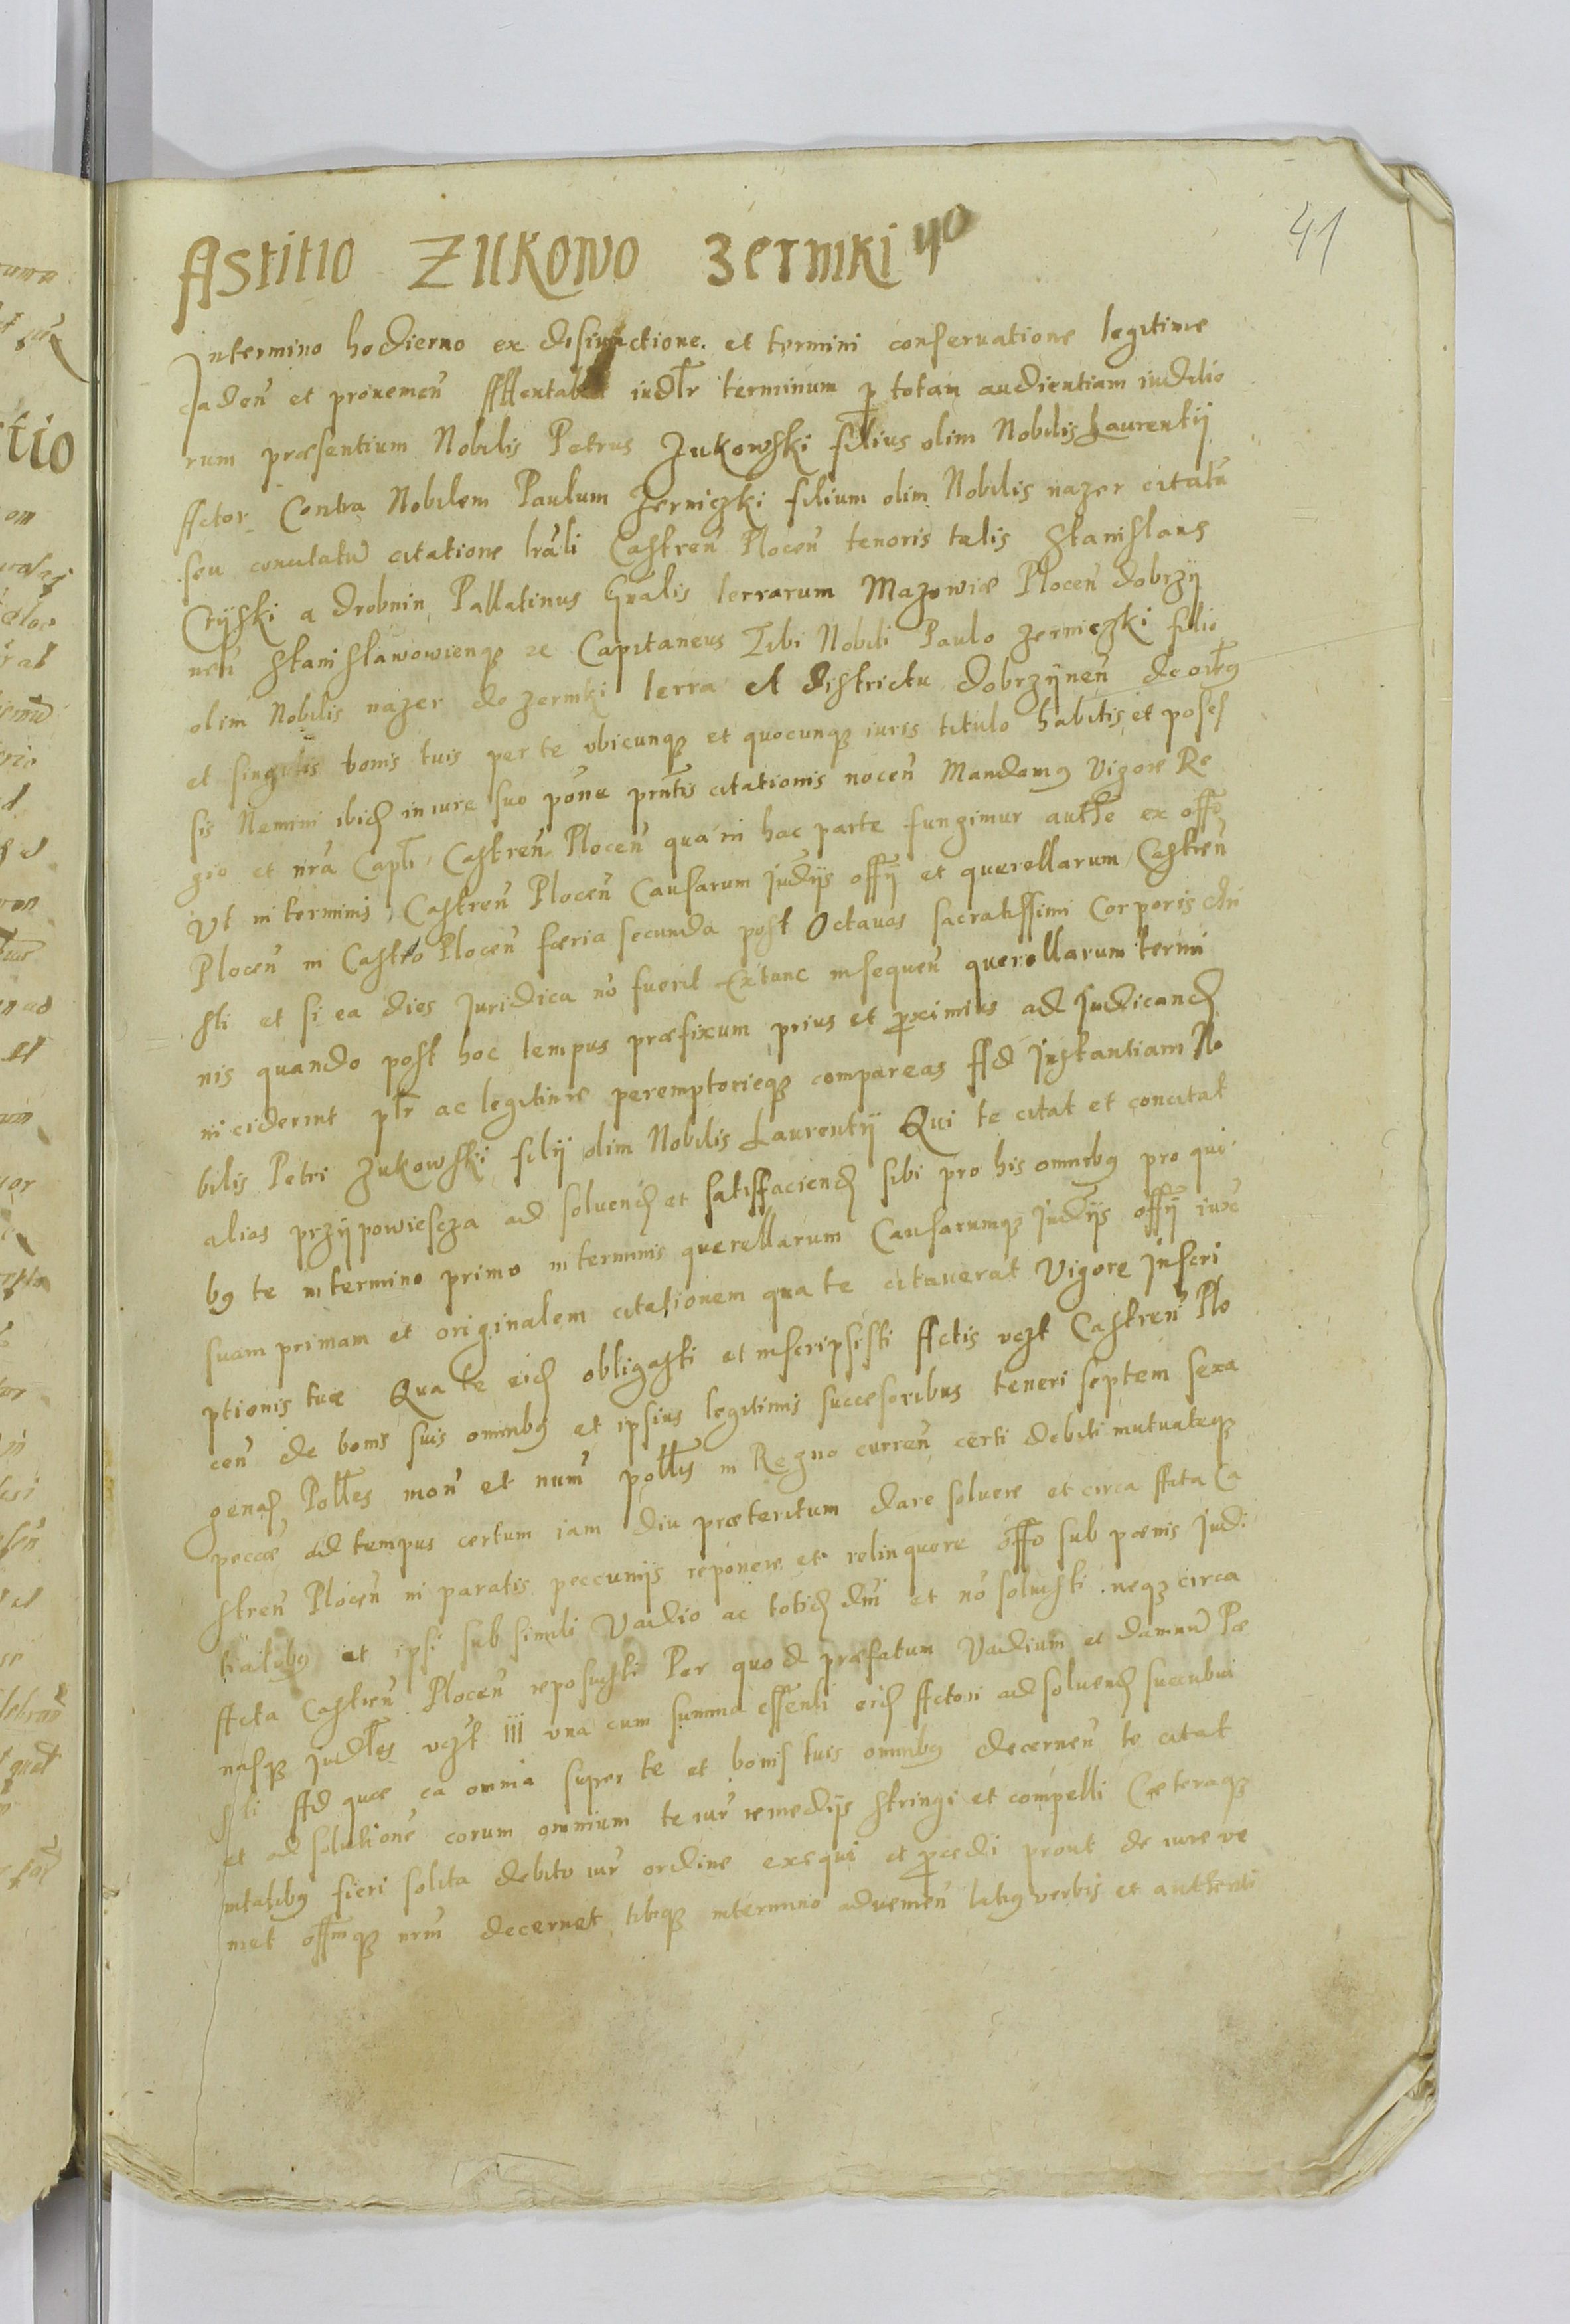 41
Astitio Zukowo Zerniki 40
In termino hodierno ex disiunctione et termini conseruatione legitime
caden̄ et prouenien̄ Attentabat iudl̄r terminum p totam audientiam iudicio
rum præsentium Nobilis Petrus Zukowski filius olim Nobilis Laurentij
Actor Contra Nobilem Paulum Zerniczki filium olim Nobilis nazer citatū
seu concitatū citatione lrāli Castren̄ Plocen̄ tenoris talis Stanislaus
Cryski a drobnin Pallatinus Gn̄alis terrarum Mazowiæ Plocen̄ dobrzÿ
nen̄ Stanislawowienq̧ ze Capitaneus Tibi Nobili Paulo Zerniczki filio
olim Nobilis nazer de zerniki terra et districtu dobrzÿnen̄ de oībus
et singulis bonis tuis per te vbicunq̧ et quocunq̧ iuris titulo habitis et poses
sis Nemini ibid in iure suo pōnu pn̄tis citationis nocen̄ Mandamus Vigore Re
gio et nrā Capl̄i Castren̄ Plocen̄ qua in hac parte fungimur authē ex offō
Vt in terminis Castren̄ Plocen̄ Causarum Judÿs offÿ et querellarum Castren̄
Plocen̄ in Castro Plocen̄ færia secunda post Octauas sacratissimi Corporis chri
sti et si ea dies Juridica nō fuerit Extunc insequen̄ querellarum termi
nis quando post hoc tempus præfixum prius et pximius ad Judicand
inciderint pl̄r ac legitime peremptorieq̧ compareas Ad Instantiam No
bilis Petri Zukowski filÿ olim Nobilis Laurentÿ Qui te citat et concitat
alias przÿpowiescza ad soluend et satisfaciend sibi pro his omnibus pro qui
bus te in termino primo in terminis querellarum Causarumq̧ Judÿs offÿ iux̄
suam primam et originalem citationem qua te citauerat Vigore Inscri
ptionis tuæ Qua te eid obligasti et inscripsisti Actis vzt Castren̄ Plo
cen̄ de bonis suis omnibus et ipsius legitimis succesoribus teneri septem sexa
genas Poll̄es mon̄ et num̄ poll̄is in Regno curren̄ certi debiti mutuateq̧
peccæ ad tempus certum iam diu præteritum dare soluere et circa Acta Ca
stren̄ Plocen̄ in paratis peccunÿs reponere et relinquere offō sub pænis Judi
tialibus et ipsi sub simili Vadio ac totid dni et nō soluisti neq̧ circa
Acta Castren̄ Plocen̄ reposuisti Per quod præfatum Vadium et damnū Pæ
nasq̧ Judl̄es vzt III vna cum summa essenti eid Actori ad soluend succubui
sti Ad quæ ea omnia super te et bonis tuis omnibus decernen̄ te citat
et ad solutionē eorum omnium te iur̄ remedÿs stringi et compelli Cæteraq̧
in talibus fieri solita debito iur̄ ordine exequi et pcedi prout de iure ve
niet offmq̧ nrm̄ decernet tibiq̧ in termino aduenien̄ latius verbis et authenti